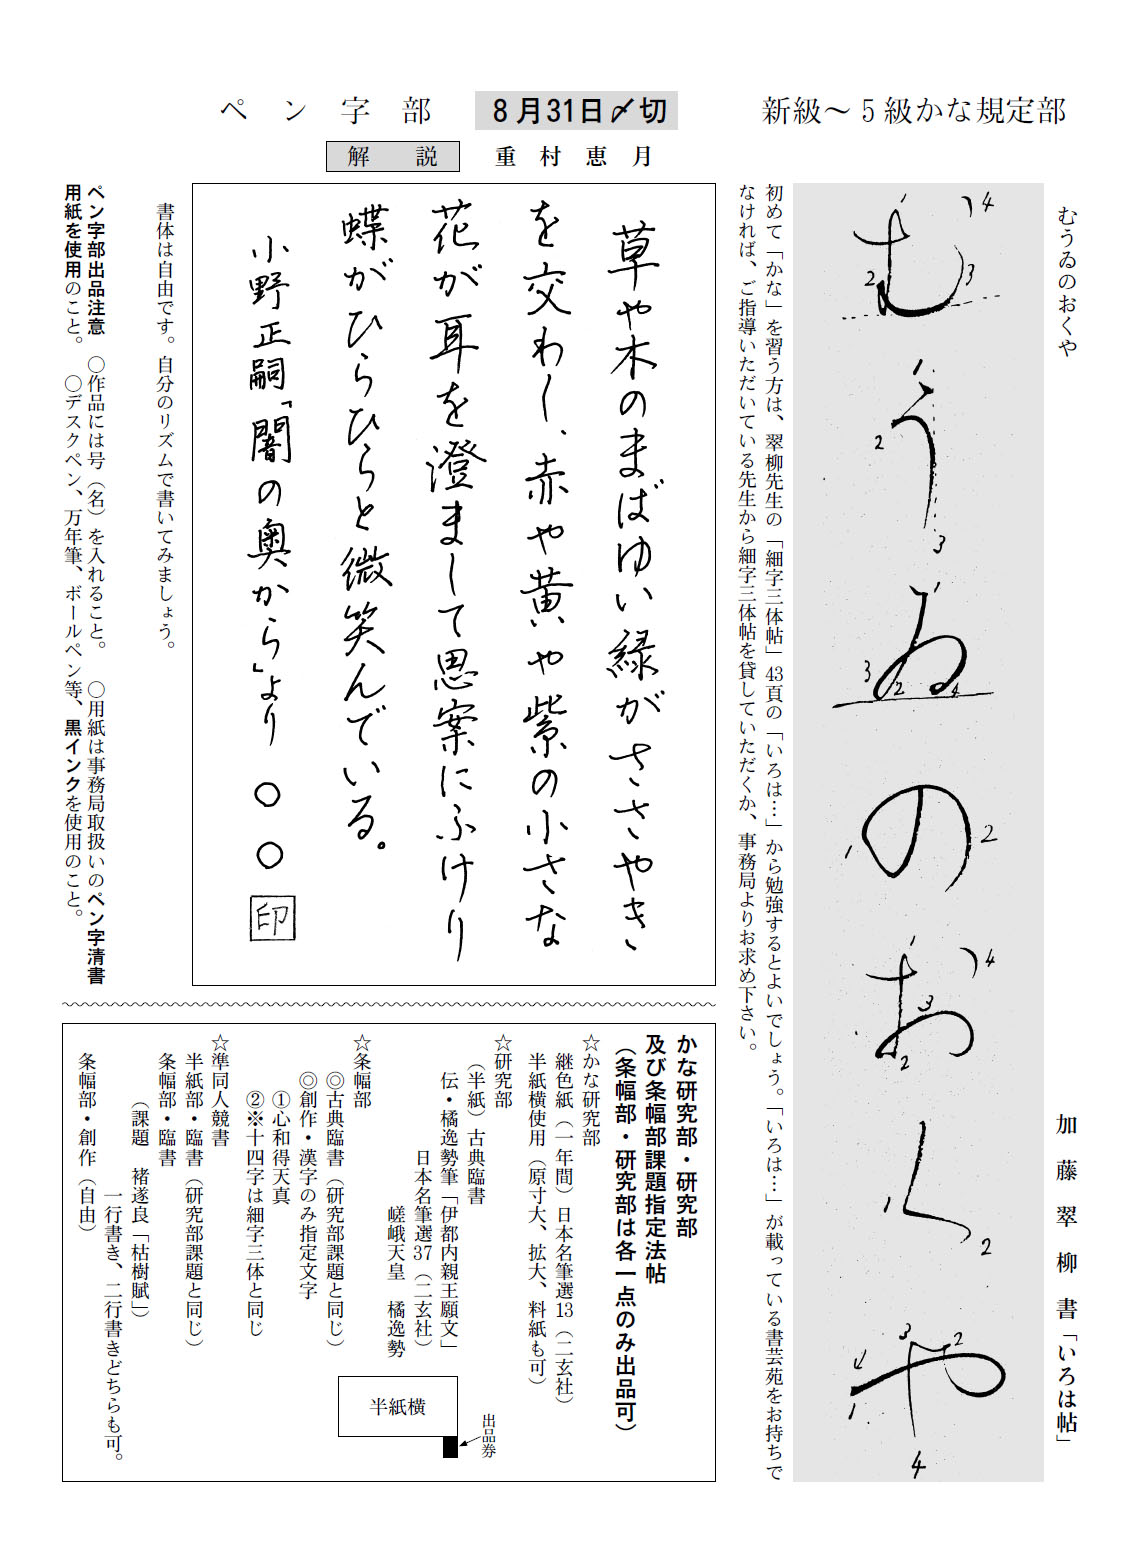 新級～５級かな規定部
８月31日〆切
ペン字部
むうゐのおくや
加藤翠柳書「いろは帖」
むうゐのおくや
4
2
3
2
3
3
2
4
1
2
4
3
2
2
3
2
1
4
初めて「かな」を習う方は、翠柳先生の「細字三体帖」43頁の「いろは…」から勉強するとよいでしょう。「いろは…」が載っている書芸苑をお持ちで
なければ、ご指導いただいている先生から細字三体帖を貸していただくか、事務局よりお求め下さい。
解説
重村恵月
草や木のまばゆい緑がささやき
を交わし、赤や黄や紫の小さな
花が耳を澄まして思案にふけり
蝶がひらひらと微笑んでいる。
小野正嗣「闇の奥から」より ○○ 印
書体は自由です。自分のリズムで書いてみましょう。
ペン字部出品注意 ○作品には号（名）を入れること。 ○用紙は事務局取扱いのペン字清書
用紙を使用のこと。 ○デスクペン、万年筆、ボールペン等、黒インクを使用のこと。
かな研究部・研究部
及び条幅部課題指定法帖
（条幅部・研究部は各一点のみ出品可）
☆かな研究部
継色紙（一年間）日本名筆選13（二玄社）
半紙横使用（原寸大、拡大、料紙も可）
☆研究部
（半紙）古典臨書
伝・橘逸勢筆「伊都内親王願文」
日本名筆選37（二玄社）
嵯峨天皇 橘逸勢
☆条幅部
◎古典臨書（研究部課題と同じ）
◎創作・漢字のみ指定文字
①心和得天真
②※十四字は細字三体と同じ
☆準同人競書
半紙部・臨書（研究部課題と同じ）
条幅部・臨書
（課題 褚遂良「枯樹賦」）
一行書き、二行書きどちらも可。
条幅部・創作（自由）
半紙横
出品券